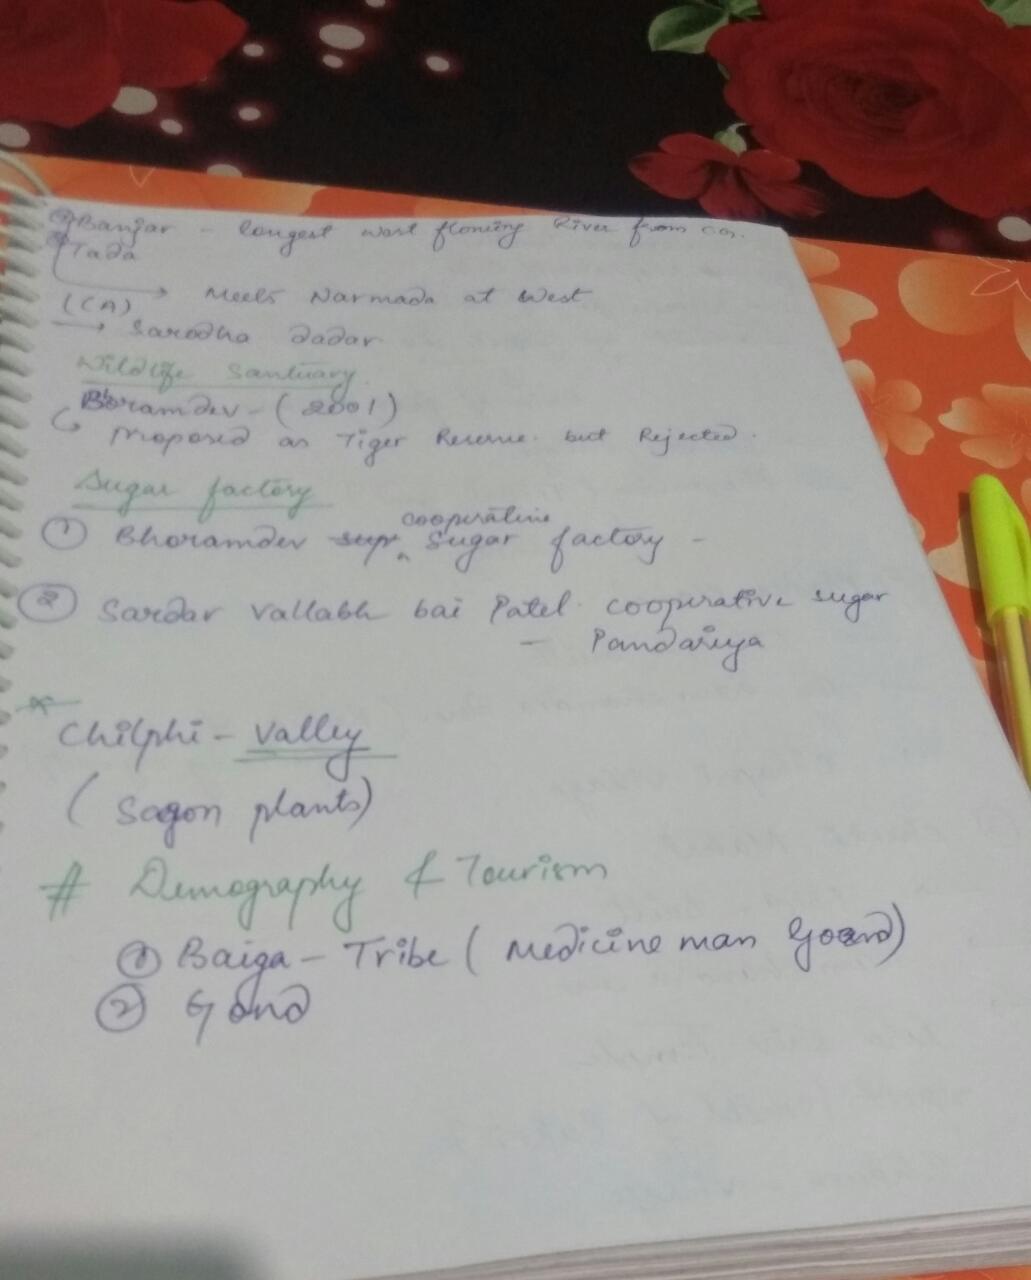 Banjar - longest west flowing River from CG.
Tada
→ Meets Narmada at West
(CA)
→ Sarodha dadar
Wildlife Santuary
Bhoramdev - (2001)
Proposed as Tiger Reserve but Rejected.
Sugar factory
① Bhoramdev cooperative Sugar factory -
② Sardar vallabh bai Patel cooperative sugar
- Pandariya
* Chilphi - valley
(Sagon plants)
# Demography & Tourism
① Baiga - Tribe (Medicine man Goand)
② Gond